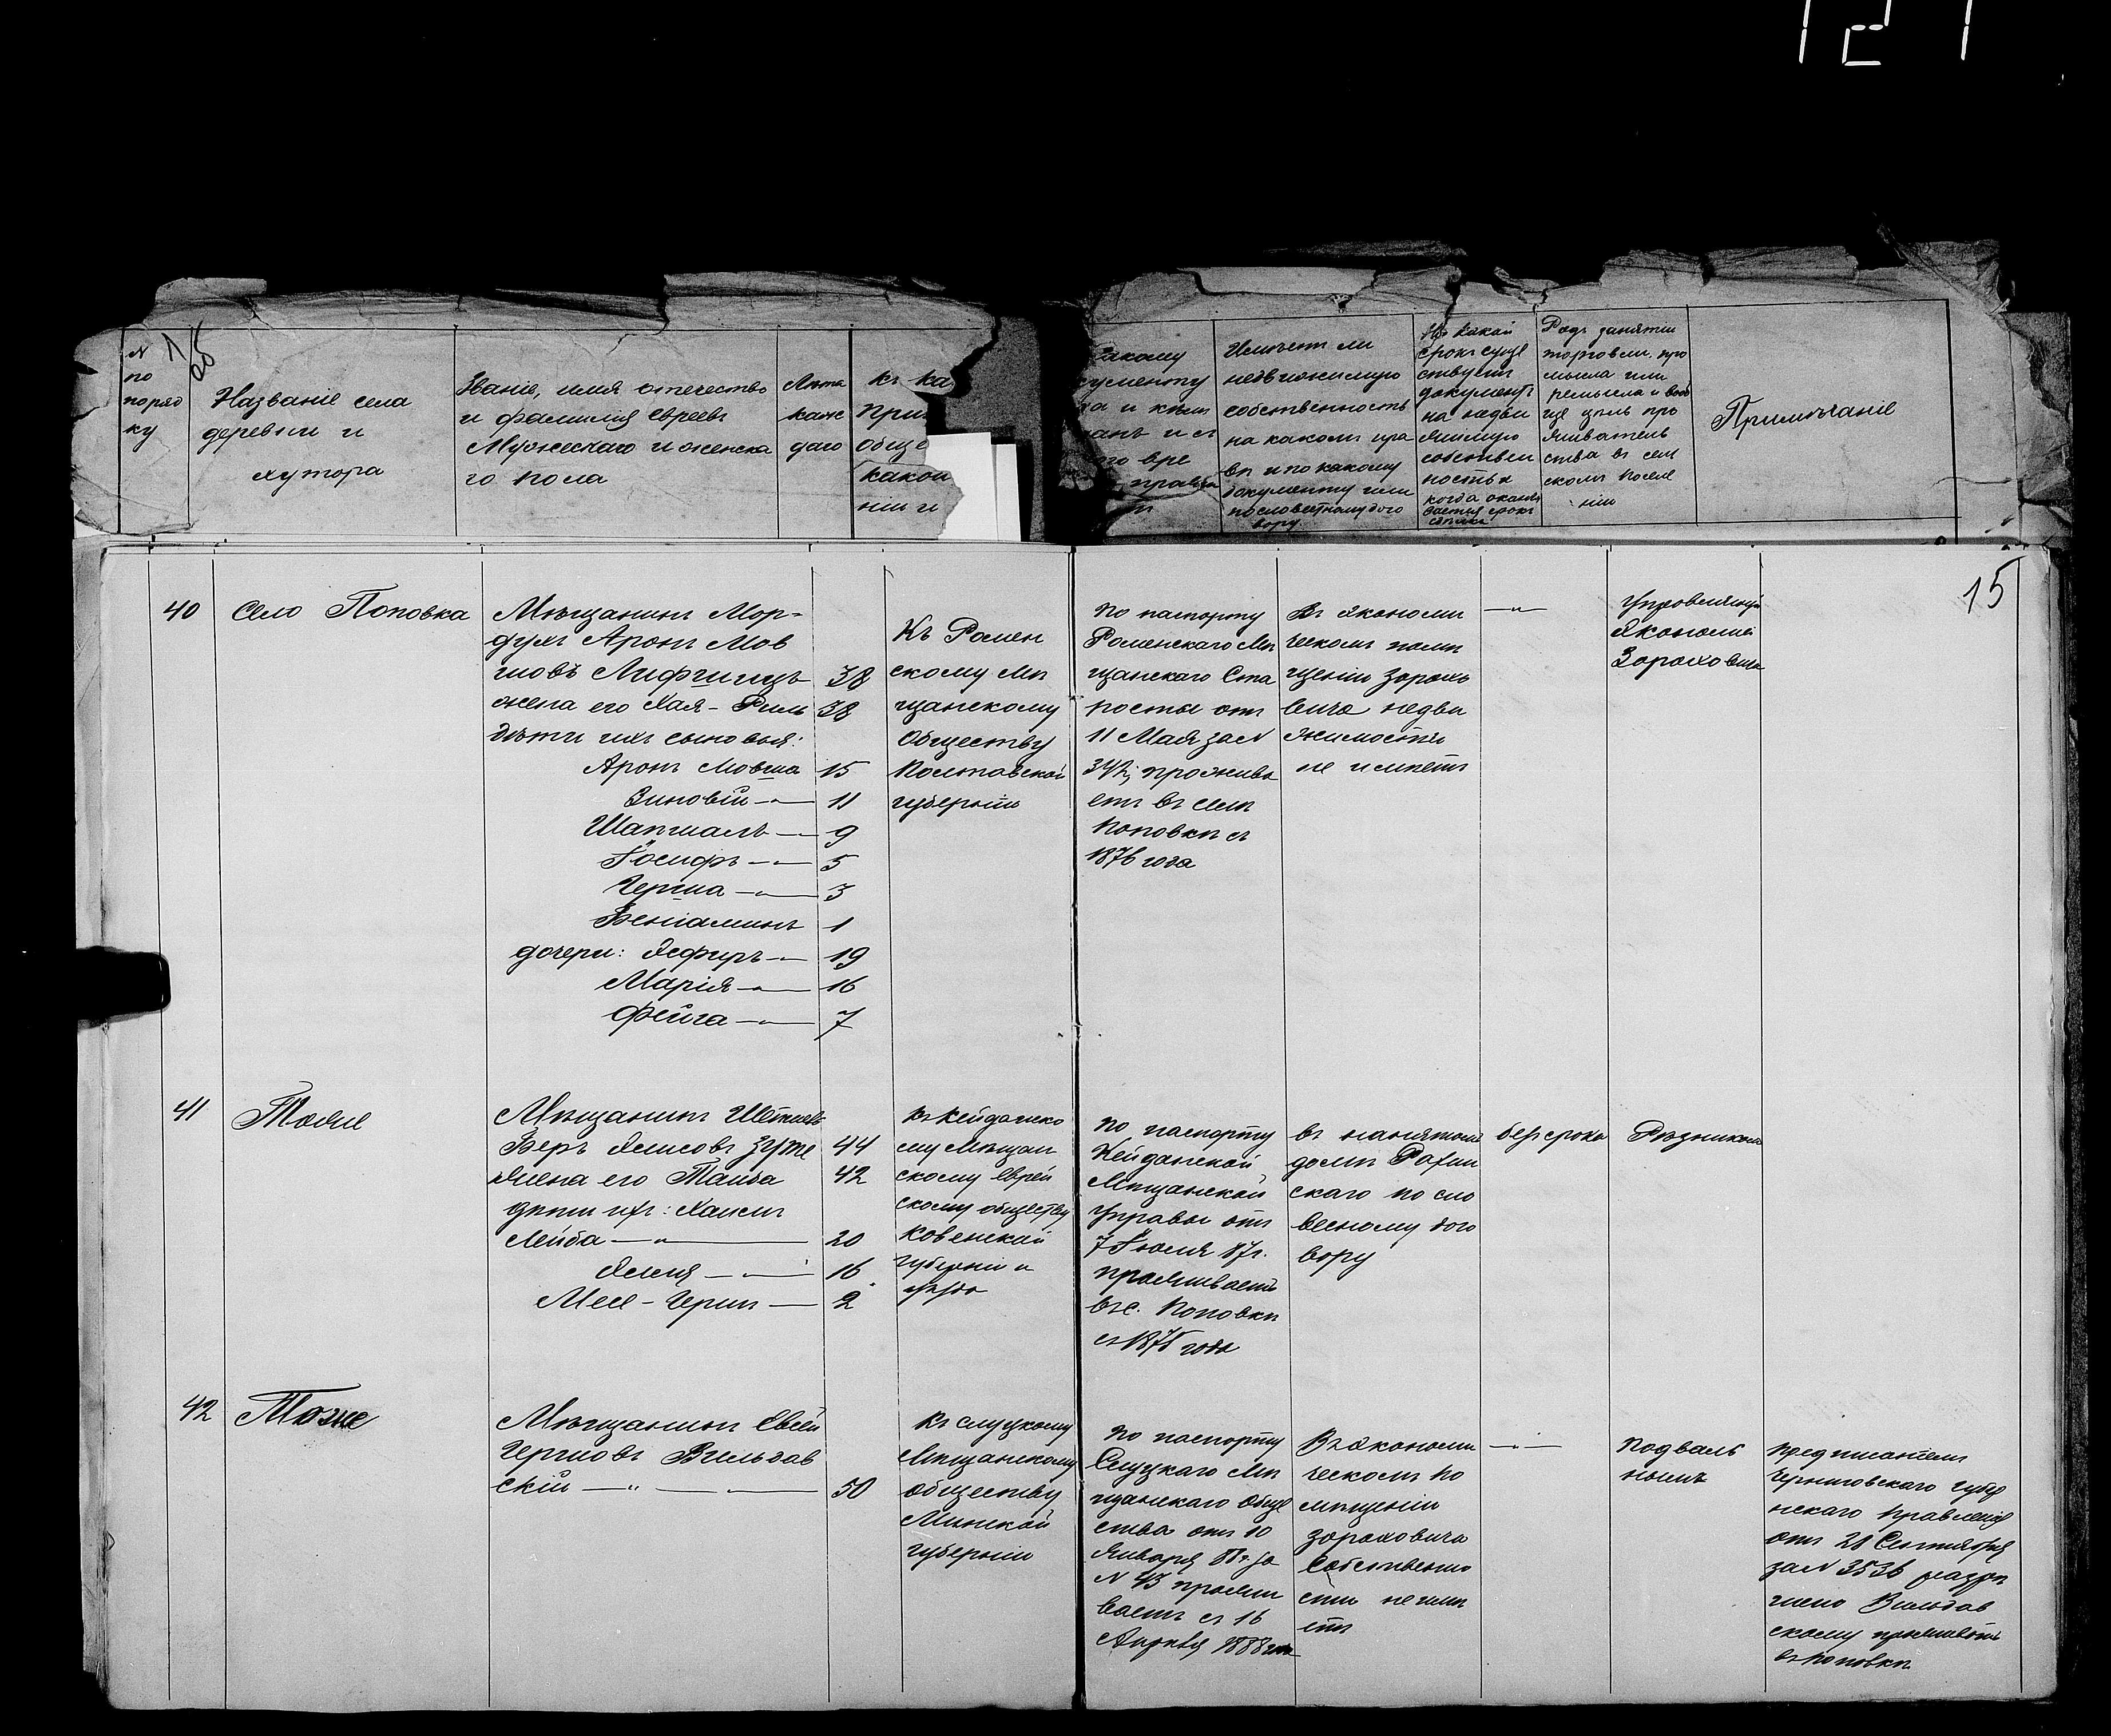 121
№
по
поряд
ку
Названіе села
деревни и
хутора
Званіе, имя отечество
и фамилія евреевъ
Мужескаго и женска
го пола
Лѣта
каж
даго
къ ка
при
обще
какой
ніи и
какому
кумента
и кѣмъ
анъ и съ
го вре
Имѣетъ ли
недвижимую
собственность
на какомъ пра
вѣ и по какому
документу или
по словестному дого
вору
На какой
срокъ суще
ствуетъ
документъ
на недви
жимую
собствен
ность и
когда оканчи
вается срокъ
Родъ занятія
торговли, про
мысла или
ремысла и вооб
ще цѣль про
живатель
ства въ сел
скомъ посел
ніи
Примѣчаніе
15
40
Село Поповка
Мѣщанинъ Мор-
духъ Аронъ Мов
шовъ Лифшицъ
38
жена его Хая-Риль
38
дѣти ихъ сыновья:
Аронъ Мовша 15
Зиновій —"— 11
Шапшалъ —"— 9
Іосифъ —"— 5
Герша —"— 3
Веніаминъ 1
дочери: Эсфиръ —"— 19
Марія —"— 16
Фейга —"— 7
Къ Ромен
скому Мѣ
щанскому
Обществу
Полтавской
губерніи
По паспорту
Роменскаго Мѣ
щанскаго Ста
росты отъ
11 Мая за №
342; прожива
етъ въ селѣ
Поповкѣ съ
1876 года
Въ экономи
ческомъ помѣ
щеніи Зорохо
вича недви
жимости
не имѣетъ
—"—
Управляющій
Экономіей
Зороховича
41
Тоже
Мѣщанинъ
Беръ
44
жена его Тайба 42
дѣти ихъ: Хаимъ
Лейба —"— 20
16
2
Къ Кейданско
му Мѣщан
скому еврей
скому обществу
Ковенской
губерніи и
уѣзда
по паспорту
Кейданской
Мѣщанской
Управы отъ
7 Іюля 87 г.
проживаетъ
въ с. Поповкѣ
съ 1875 года
въ нанятомъ
домѣ
скаго по сло
весному дого
вору
безъ срока
Рѣзникомъ
42
Тоже
Мѣщанинъ Евсей
Гершовъ Вильдав
скій —"— —"— 50
Къ Слуцкому
Мѣщанскому
обществу
Минской
губерніи
По паспорту
Слуцкаго Мѣ
щанскаго Обще
ства отъ 10
Января 88 г. за
№ 43 прожи
ваетъ съ 16
Апрѣля 1888 года
Въ экономи
ческомъ по
мѣщеніи
Зороховича
Собственно
сти не имѣ
етъ
—"—
Подваль
нымъ
предписаніемъ
Черниговскаго губер
нскаго Правленія
отъ 28 Сентября
за № 3536 разрѣ
шено Вильдав
скому проживать
въ Поповкѣ